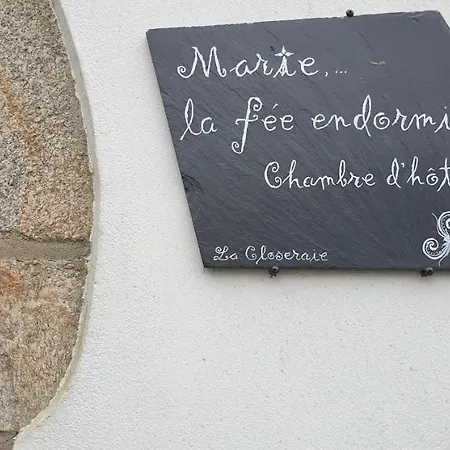 Marie,...
la fée endormi
Chambre d'hôt
La Closeraie